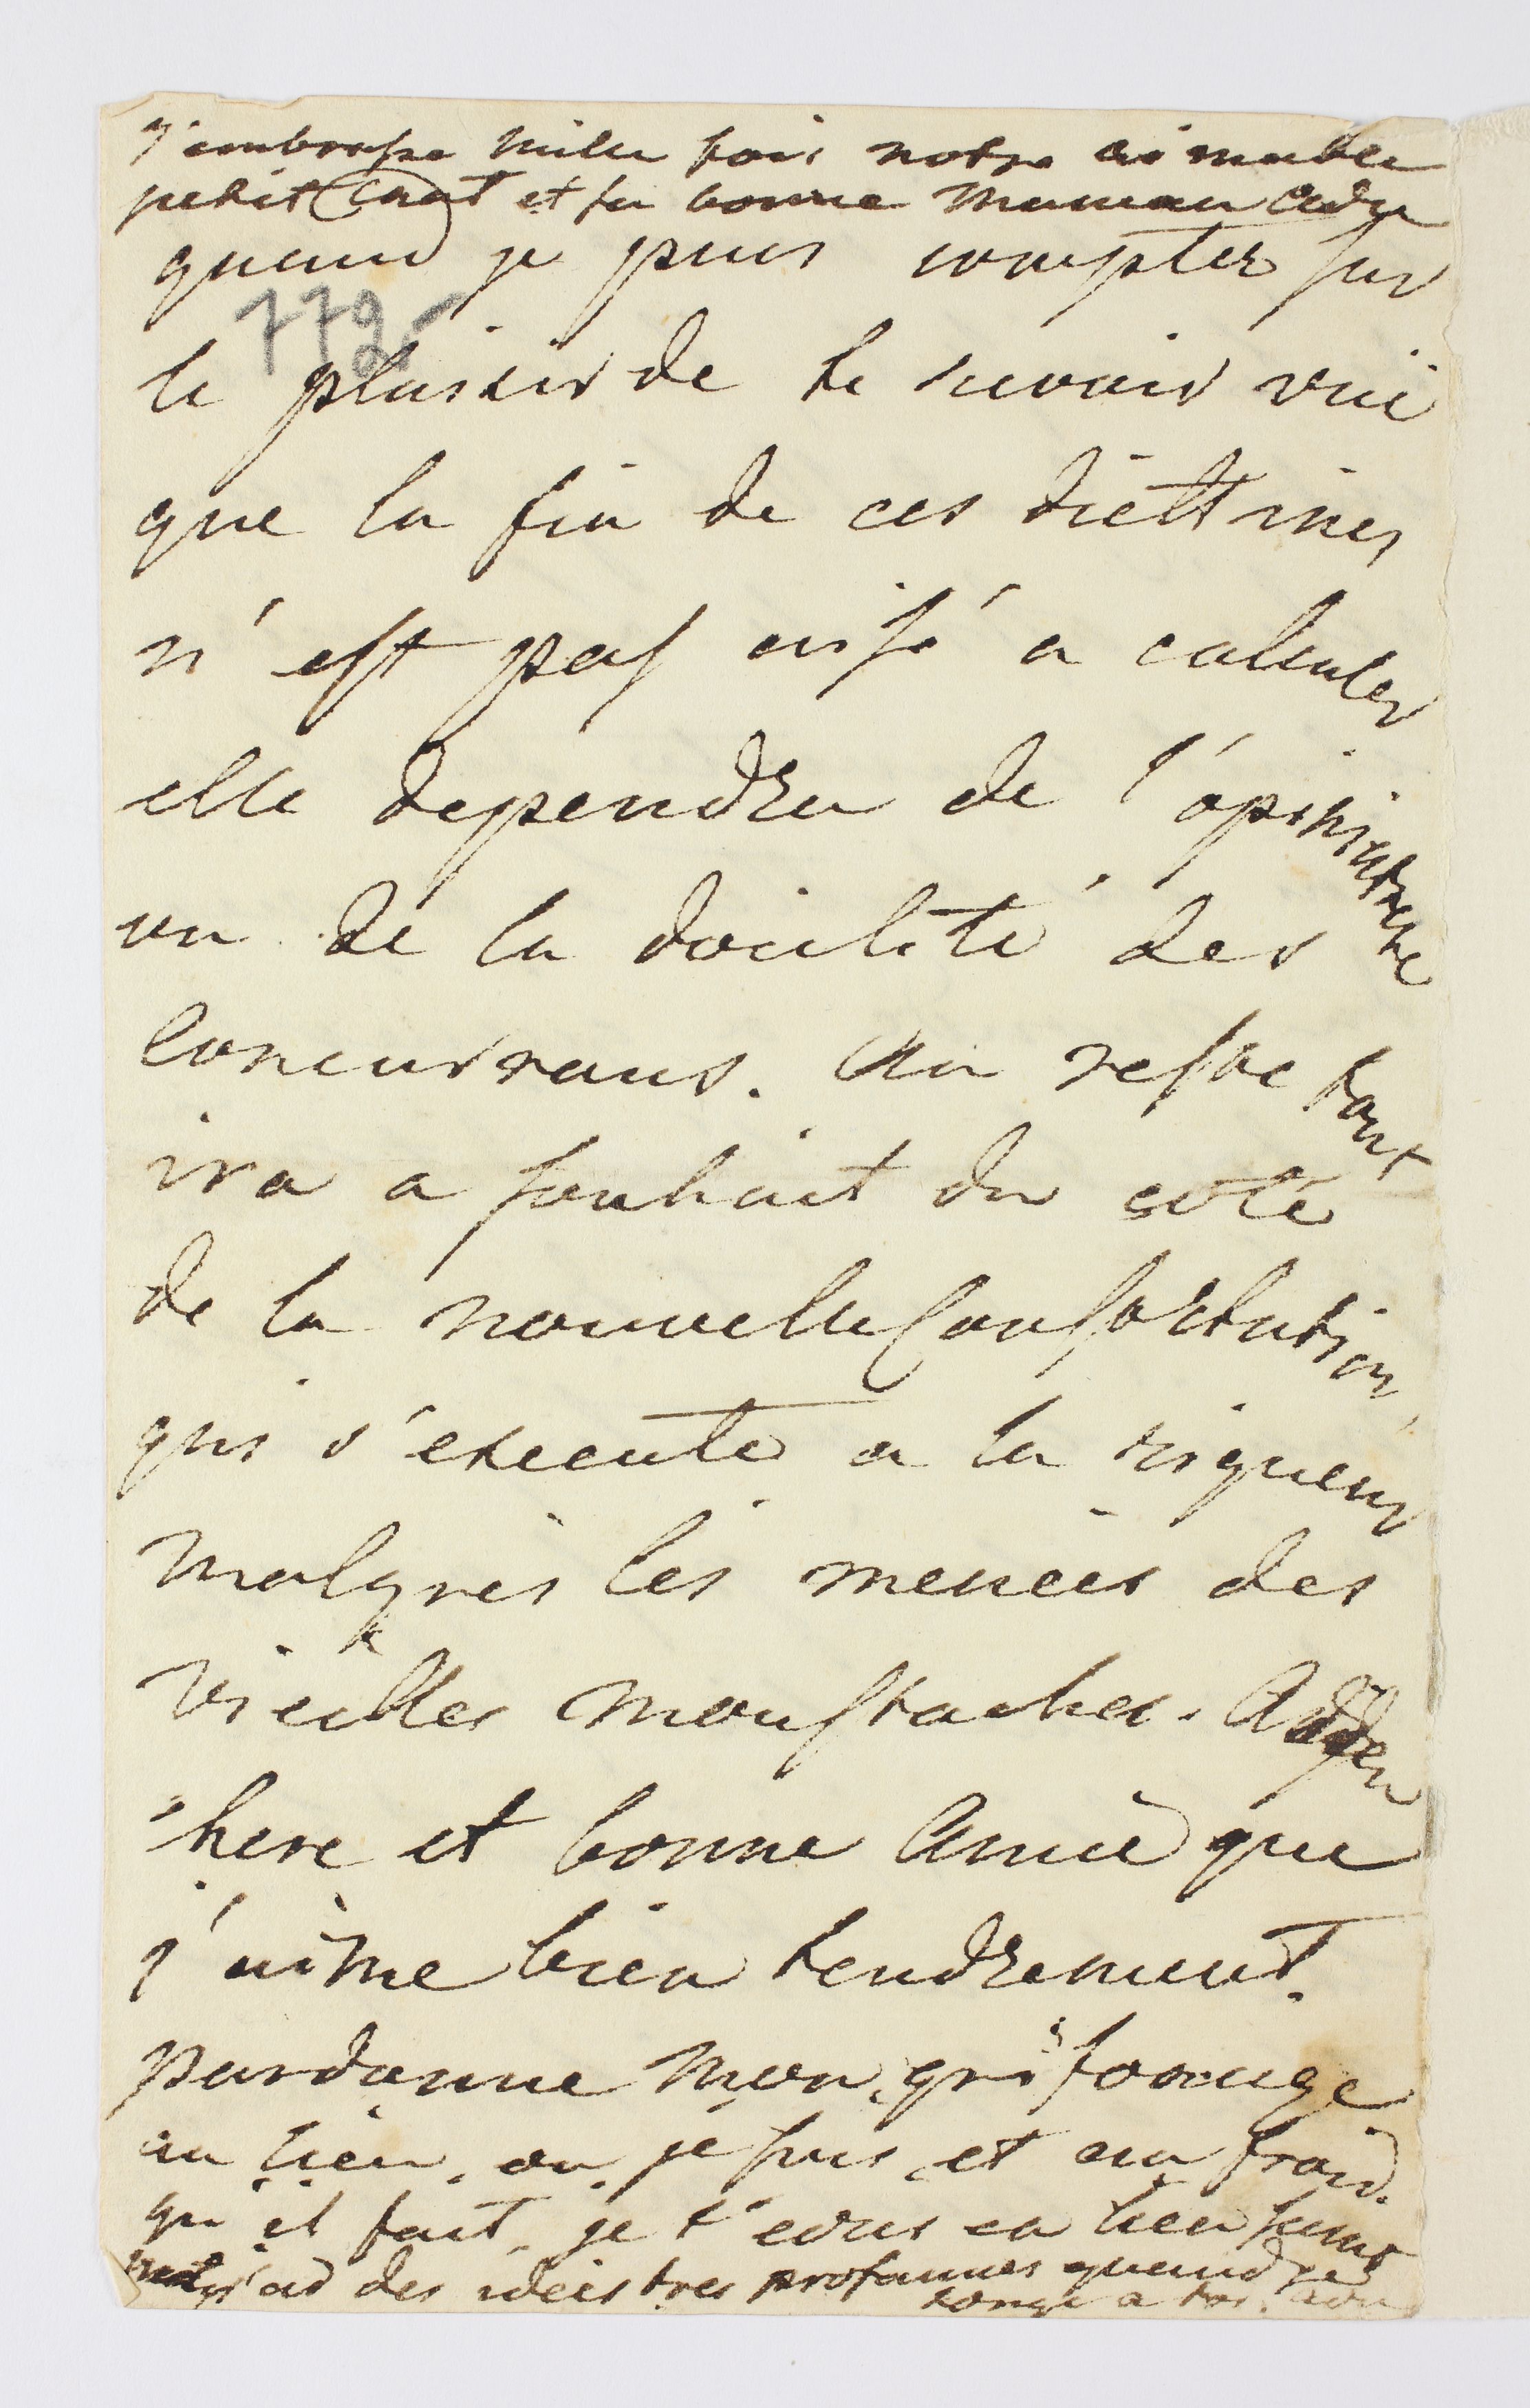 j'embrasse mille fois notre aimable
petit Chat et sa bonne Maman adieu
quand je puis compter sur
772.
le plaisir de te revoir vuë
que la fin de ces diettines
n'est pas aisé a calculer
elle dependra de l'opiniatreté
ou de la docilité des
Concurrans. Au reste tout
ira a souhait du coté
de la nouvelle Constitution,
qui s'execute a la rigueur
malgrés les menées des
vieilles moustaches. Adieu
chere et bonne Amie que
j'aime bien tendrement.
pardonne mon grifonage
au lieu, ou je suis, et au froid
qu'il fait, je t'ecris en lieu saint
j'ai des idées tres profannes quand je
songe a toi. adieu